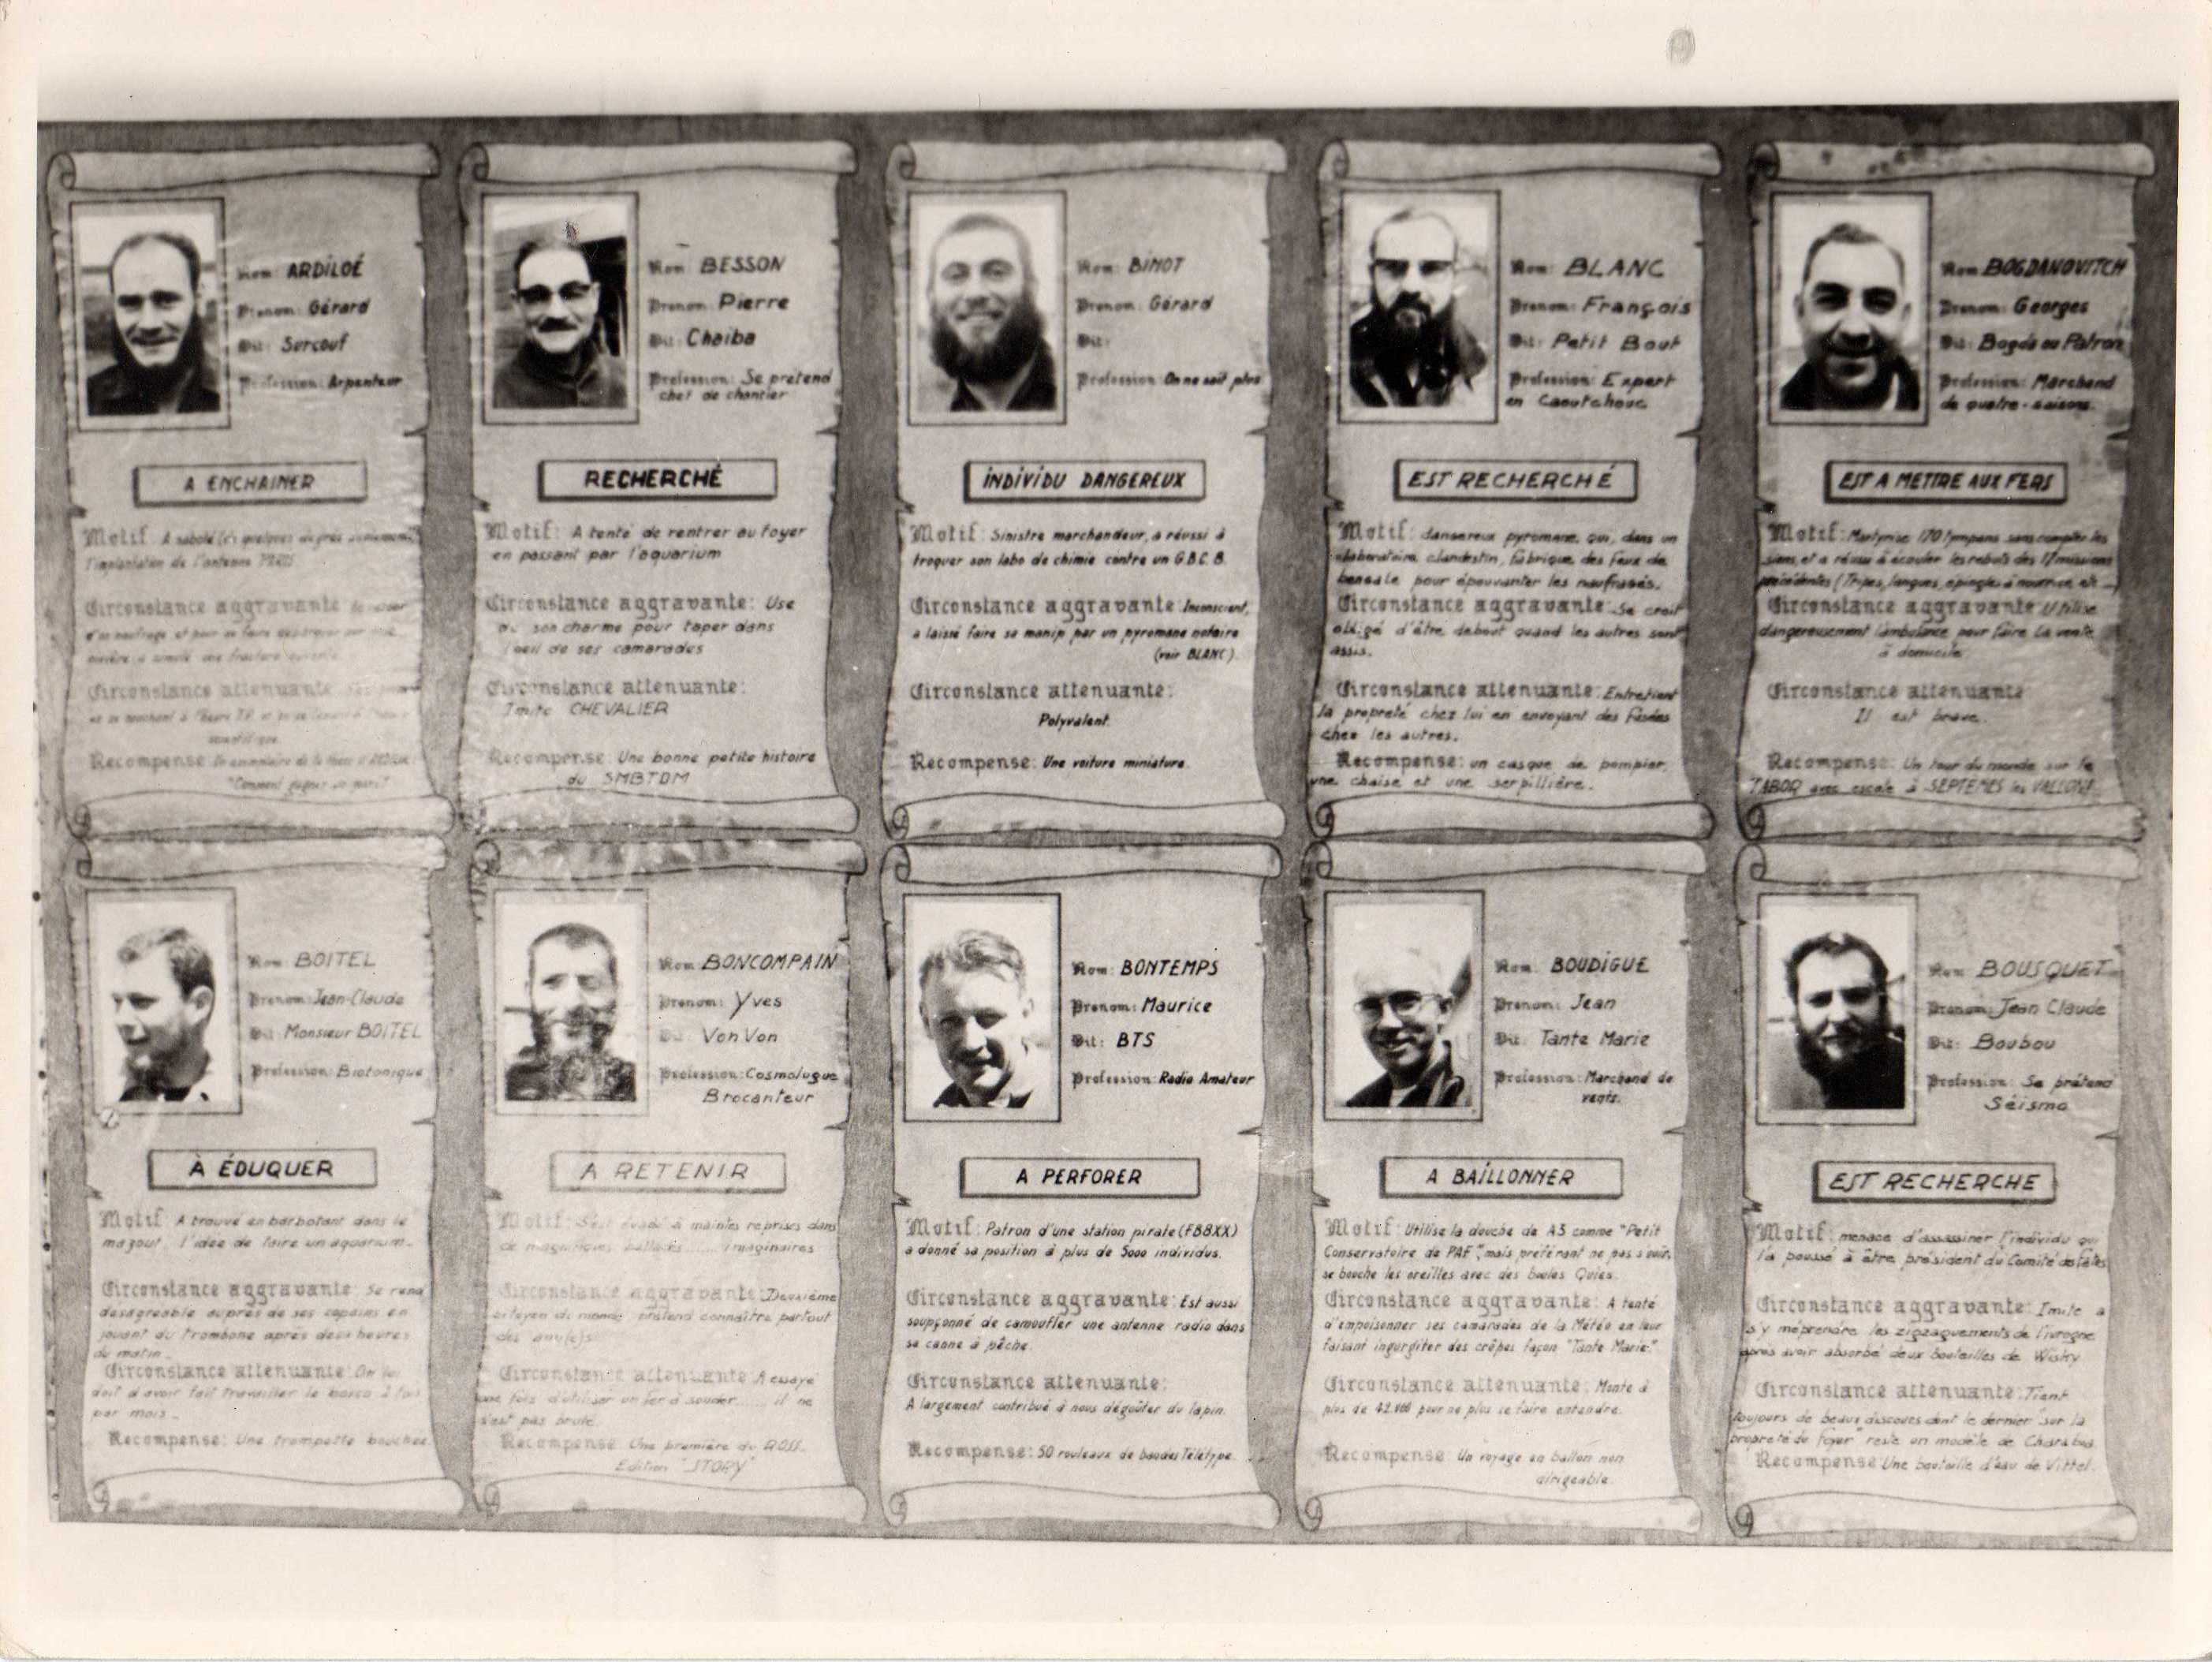 Nom: ARDILOÉ
Prenom: Gérard
Dit: Surcouf
Profession: Arpenteur
A ENCHAINER
Motif: A saboté quelques degrés
l'implantation de l'antenne
Circonstance aggravante
Circonstance attenuante
Recompense
"Comment gagner un pari"
Nom: BESSON
Prenom: Pierre
Dit: Chaiba
Profession: Se prétend
chef de chantier
RECHERCHÉ
Motif: A tenté de rentrer au foyer
en passant par l'aquarium
Circonstance aggravante: Use
de son charme pour taper dans
l'oeil de ses camarades
Circonstance attenuante:
Imite CHEVALIER
Recompense: Une bonne petite histoire
du SMBTDM
Nom: BINOT
Prenom: Gérard
Dit:
Profession: On ne sait plus
INDIVIDU DANGEREUX
Motif: Sinistre marchandeur, a réussi à
troquer son labo de chimie contre un G.B.C.B.
Circonstance aggravante: Inconscient,
a laissé faire sa manip par un pyromane notoire
(voir BLANC).
Circonstance attenuante:
Polyvalent.
Recompense: Une voiture miniature.
Nom: BLANC
Prenom: François
Dit: Petit Bout
Profession: Expert
en Caoutchouc
EST RECHERCHÉ
Motif: dangereux pyromane qui, dans un
laboratoire clandestin, fabrique des feux de
bengale pour épouvanter les naufragés.
Circonstance aggravante: Se croit
obligé d'être debout quand les autres sont
assis.
Circonstance attenuante: Entretient
la propreté chez lui en envoyant des fusées
chez les autres.
Recompense: un casque de pompier,
une chaise et une serpillière.
Nom: BOGDANOVITCH
Prenom: Georges
Dit: Bogda ou Patron
Profession: Marchand
de quatre-saisons.
EST A METTRE AUX FERS
Motif: Martyrise 170 tympans sans compter les
siens, et a réussi à écouler les rebuts des 17 missions
précédentes (Tripes, langues, épingles à nourrice, etc...)
Circonstance aggravante Utilise
dangereusement l'ambulance pour faire la vente
à domicile
Circonstance attenuante
Il est brave.
Recompense: Un tour du monde sur le
TABOR avec escale à SEPTEMES les VALLONS
Nom: BOITEL
Prenom: Jean-Claude
Dit: Monsieur BOITEL
Profession: Biotonique
À ÉDUQUER
Motif: A trouvé en barbotant dans le
mazout l'idée de faire un aquarium.
Circonstance aggravante: Se rend
désagréable auprès de ses copains en
jouant du trombone après deux heures
du matin.
Circonstance attenuante: On lui
doit d'avoir fait travailler le
par mois.
Recompense: Une trompette bouchée.
Nom: BONCOMPAIN
Prenom: Yves
Dit: VonVon
Profession: Cosmologue
Brocanteur
A RETENIR
Motif: S'est évadé à maintes reprises dans
de magnifiques ballades...... imaginaires
Circonstance aggravante: Deuxième
citoyen du monde: prétend connaître partout
des amy(e)s
Circonstance attenuante: A essayé
une fois d'utiliser un fer à souder...... il ne
s'est pas brulé.
Recompense: Une première du ROSS.
Edition "STORY"
Nom: BONTEMPS
Prenom: Maurice
Dit: BTS
Profession: Radio Amateur
A PERFORER
Motif: Patron d'une station pirate (FB8XX)
a donné sa position à plus de 5000 individus.
Circonstance aggravante: Est aussi
soupçonné de camoufler une antenne radio dans
sa canne à pêche.
Circonstance attenuante:
A largement contribué à nous dégoûter du lapin.
Recompense: 50 rouleaux de bandes Télétype.
Nom: BOUDIGUE
Prenom: Jean
Dit: Tante Marie
Profession: Marchand de
vents.
A BAÎLLONNER
Motif: Utilise la douche de A3 comme "Petit
Conservatoire de PAF", mais préférant ne pas s'ouïr,
se bouche les oreilles avec des boules Quies.
Circonstance aggravante: A tenté
d'empoisonner ses camarades de la Météo en leur
faisant ingurgiter des crêpes façon "Tante Marie."
Circonstance attenuante: Monte à
plus de 42.000 pour ne plus se faire entendre.
Recompense: Un voyage en ballon non
dirigeable.
Nom: BOUSQUET
Prenom: Jean Claude
Dit: Boubou
Profession: Se prétend
Séismo
EST RECHERCHE
Motif: menace d'assassiner l'individu qui
l'a poussé à être président du Comité des fêtes
Circonstance aggravante: Imite à
s'y méprendre les zigzaguements de l'ivrogne
après avoir absorbé deux bouteilles de Wisky
Circonstance attenuante: Tient
toujours de beaux discours dont le dernier "sur la
propreté du foyer" reste un modèle de Charabia.
Recompense Une bouteille d'eau de Vittel.